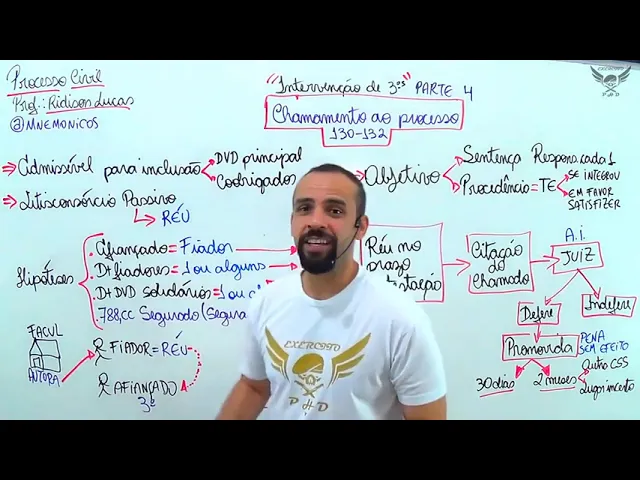 Processo Civil
Prof.: Ridison Lucas
@MNEMONICOS
"Intervenção de 3ºs" PARTE 4
Chamamento ao processo
130-132
EXERCITO
PHD
⇒ Admissível para inclusão
DVD principal
Coobrigados
Objetivo
Sentença Respons. cada 1
Procedência = TE
SE INTEGROU
EM FAVOR
SATISFIZER
⇒ Litisconsórcio Passivo
RÉU
Hipóteses
Afiançado = Fiador
D+ fiadores = 1 ou alguns
D+ DVD solidários = 1 ou
788,CC Segurado (Segura
Réu no
prazo
Citação
do
Chamado
A.I.
JUIZ
Defere
Indefere
Promovida
PENA
SEM EFEITO
30 dias
2 meses
Outro CSS
Lugar incerto
FACUL
AUTORA
FIADOR = RÉU
AFIANÇADO
3º
EXERCITO
PHD